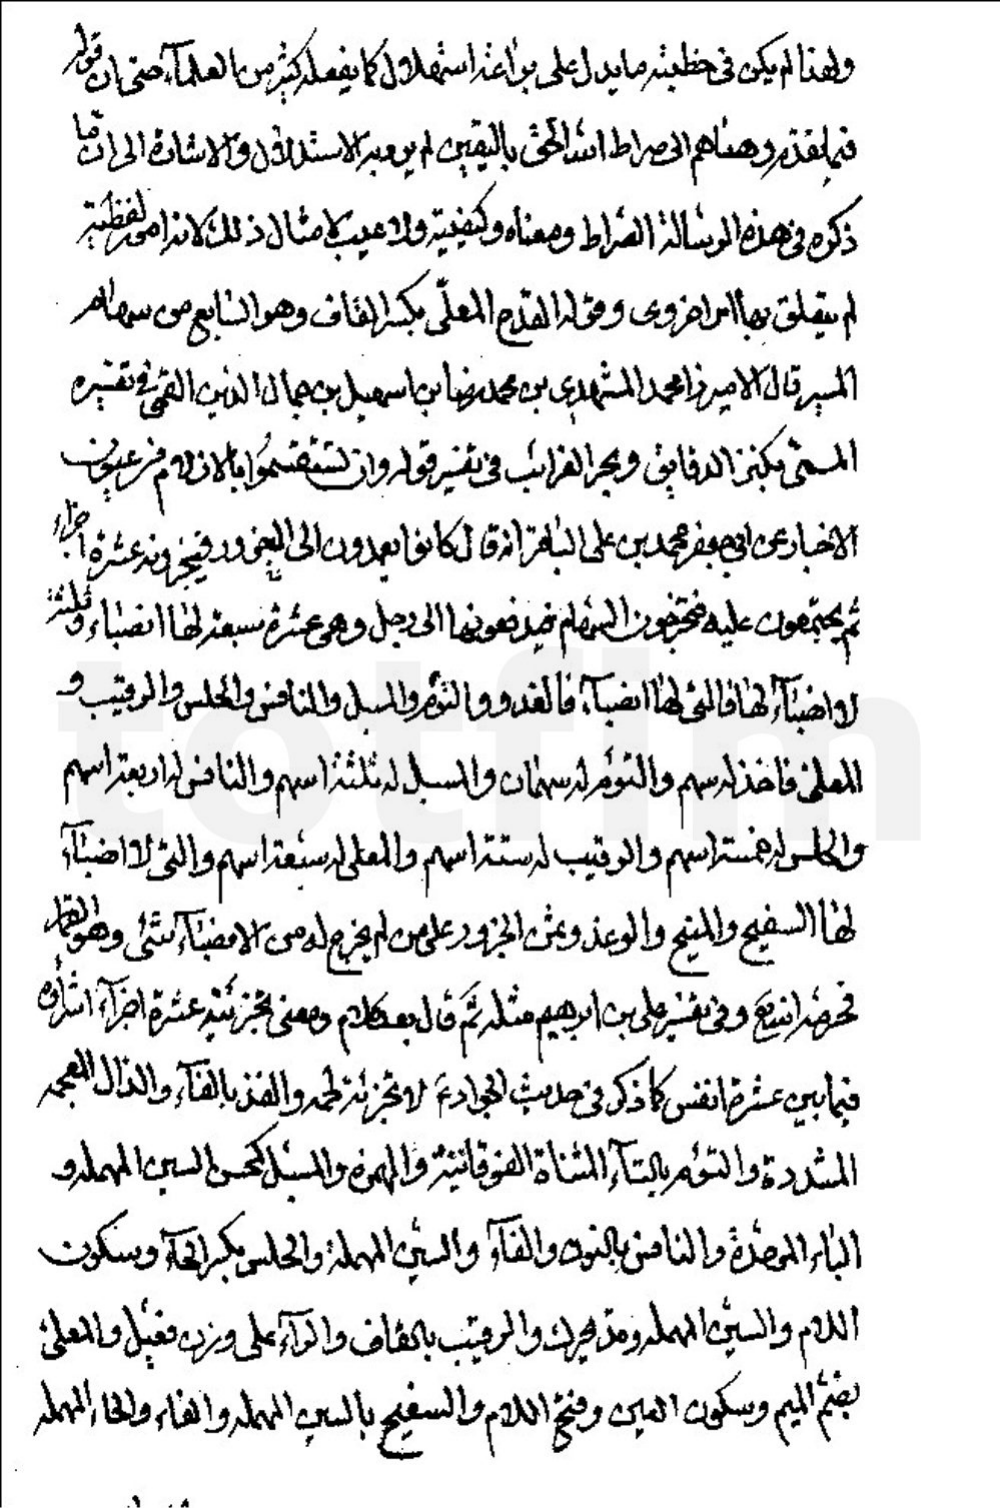 ولهذا لم يكن في خطبته ما يدل على براعة استهلال كما يفعله كثير من العلماء حتى ان قوله
فيما تقدم وهداهم الى صراط الله الحق باليقين لم يرد به الاستدلال والاشارة الى ان ما
ذكره في هذه الرسالة الصراط ومعناه وكيفيته ولا عيب لامثال ذلك لانها امور لفظية
لم يتعلق بها امر اخروى وقوله القدح المعلّى بكسر القاف وهو السابع من سهام
الميسر قال الاميرزا محمد المشهدي بن محمد رضا بن اسمعيل بن جمال الدين القمي في تفسيره
المسمى بكنز الدقايق وبحر الغرائب في تفسير قوله وان تستقسموا بالازلام من عيون
الاخبار عن ابي جعفر محمد بن علي الباقر انه قال كانوا يعمدون الى الجزور فيجزونه عشرة اجزاء
ثم يجتمعون عليه فيخرجون السهام فيدفعونها الى رجل وهي عشرة سبعة لها انصباء وثلثة
لا انصباء لها فالتي لها انصباء فالفذ والتوئم والمسبل والنافس والحلس والرقيب و
المعلى فالفذ له سهم والتوئم له سهمان والمسبل له ثلثة اسهم والنافس له اربعة اسهم
والحلس له خمسة اسهم والرقيب له ستة اسهم والمعلى له سبعة اسهم والتي لا انصباء
لها السفيح والمنيح والوغد وثمن الجزور على من لم يخرج له من الانصباء شئ وهو القمار
فحرمه انتهى وفي تفسير علي بن ابرهيم مثله ثم قال بعد كلام ومعنى تجزئته عشرة اجزاء اشتراه
فيما بين عشرة انفس كما ذكر في حديث الجواد ع لا تجزئة لحمه والفذ بالفاء والذال المعجمه
المشددة والتوئم بالتاء المثناة الفوقانية والهمزة والمسبل كمحسن السين المهمله و
الباء الموحدة والنافس بالنون والفاء والسين المهملة والحلس بكسر الحاء وسكون
اللام والسين المهمله وقد يحرك والرقيب بالقاف والراء على وزن فعيل والمعلى
بضم الميم وسكون العين وفتح اللام والسفيح بالسين المهمله والفاء والحاء المهمله